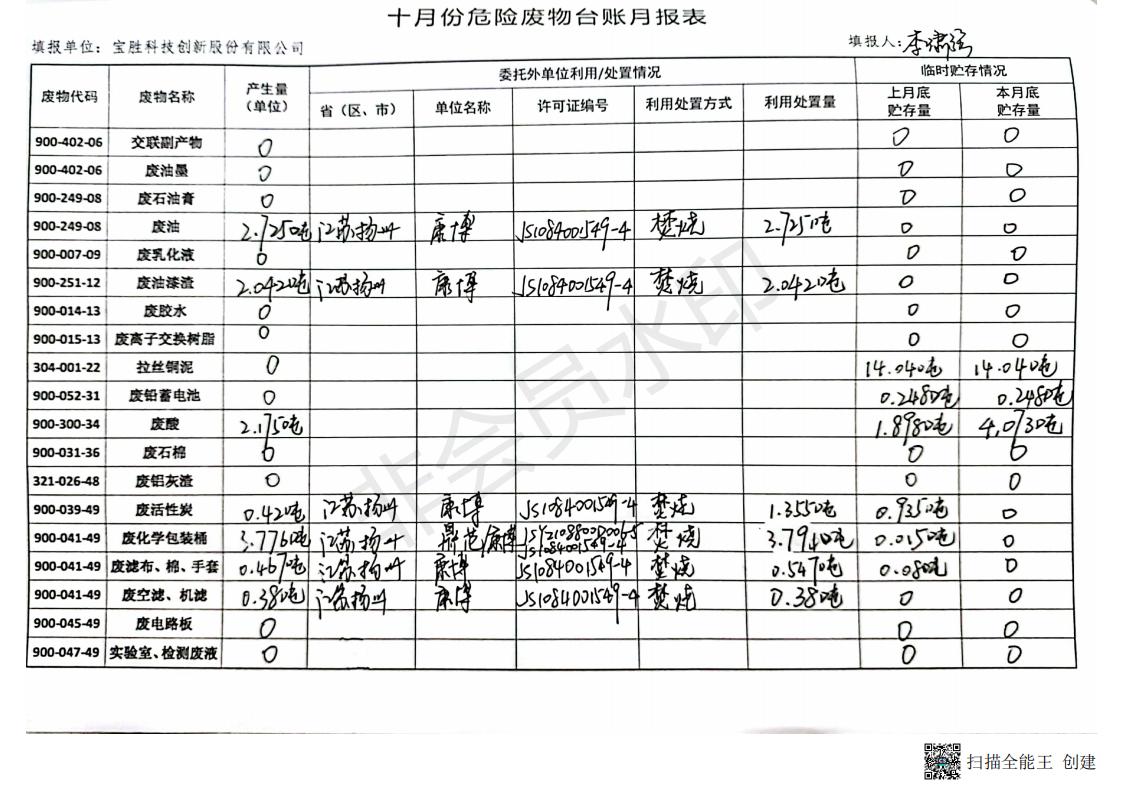 十月份危险废物台账月报表
填报单位：宝胜科技创新股份有限公司 填报人：
废物代码 废物名称 产生量（单位） 委托外单位利用/处置情况 临时贮存情况
省（区、市） 单位名称 许可证编号 利用处置方式 利用处置量 上月底贮存量 本月底贮存量
900-402-06 交联副产物 0 0 0
900-402-06 废油墨 0 0 0
900-249-08 废石油膏 0 0 0
900-249-08 废油 2.7250吨 江苏扬州 康博 JS1084001549-4 焚烧 2.7250吨 0 0
900-007-09 废乳化液 0 0 0
900-251-12 废油漆渣 2.0420吨 江苏扬州 康博 JS1084001549-4 焚烧 2.0420吨 0 0
900-014-13 废胶水 0 0 0
900-015-13 废离子交换树脂 0 0 0
304-001-22 拉丝铜泥 0 14.040吨 14.040吨
900-052-31 废铅蓄电池 0 0.2480吨 0.2480吨
900-300-34 废酸 2.1750吨 1.8980吨 4.0730吨
900-031-36 废石棉 0 0 0
321-026-48 废铝灰渣 0 0 0
900-039-49 废活性炭 0.420吨 江苏扬州 康博 JS1084001549-4 焚烧 1.3550吨 0.935吨 0
900-041-49 废化学包装桶 3.7760吨 江苏扬州 康博 JS1084001549-4 焚烧 3.7940吨 0.0150吨 0
900-041-49 废滤布、棉、手套 0.467吨 江苏扬州 康博 JS1084001549-4 焚烧 0.5470吨 0.080吨 0
900-041-49 废空滤、机滤 0.380吨 江苏扬州 康博 JS1084001549-4 焚烧 0.380吨 0 0
900-045-49 废电路板 0 0 0
900-047-49 实验室、检测废液 0 0 0
非会员水印
扫描全能王 创建